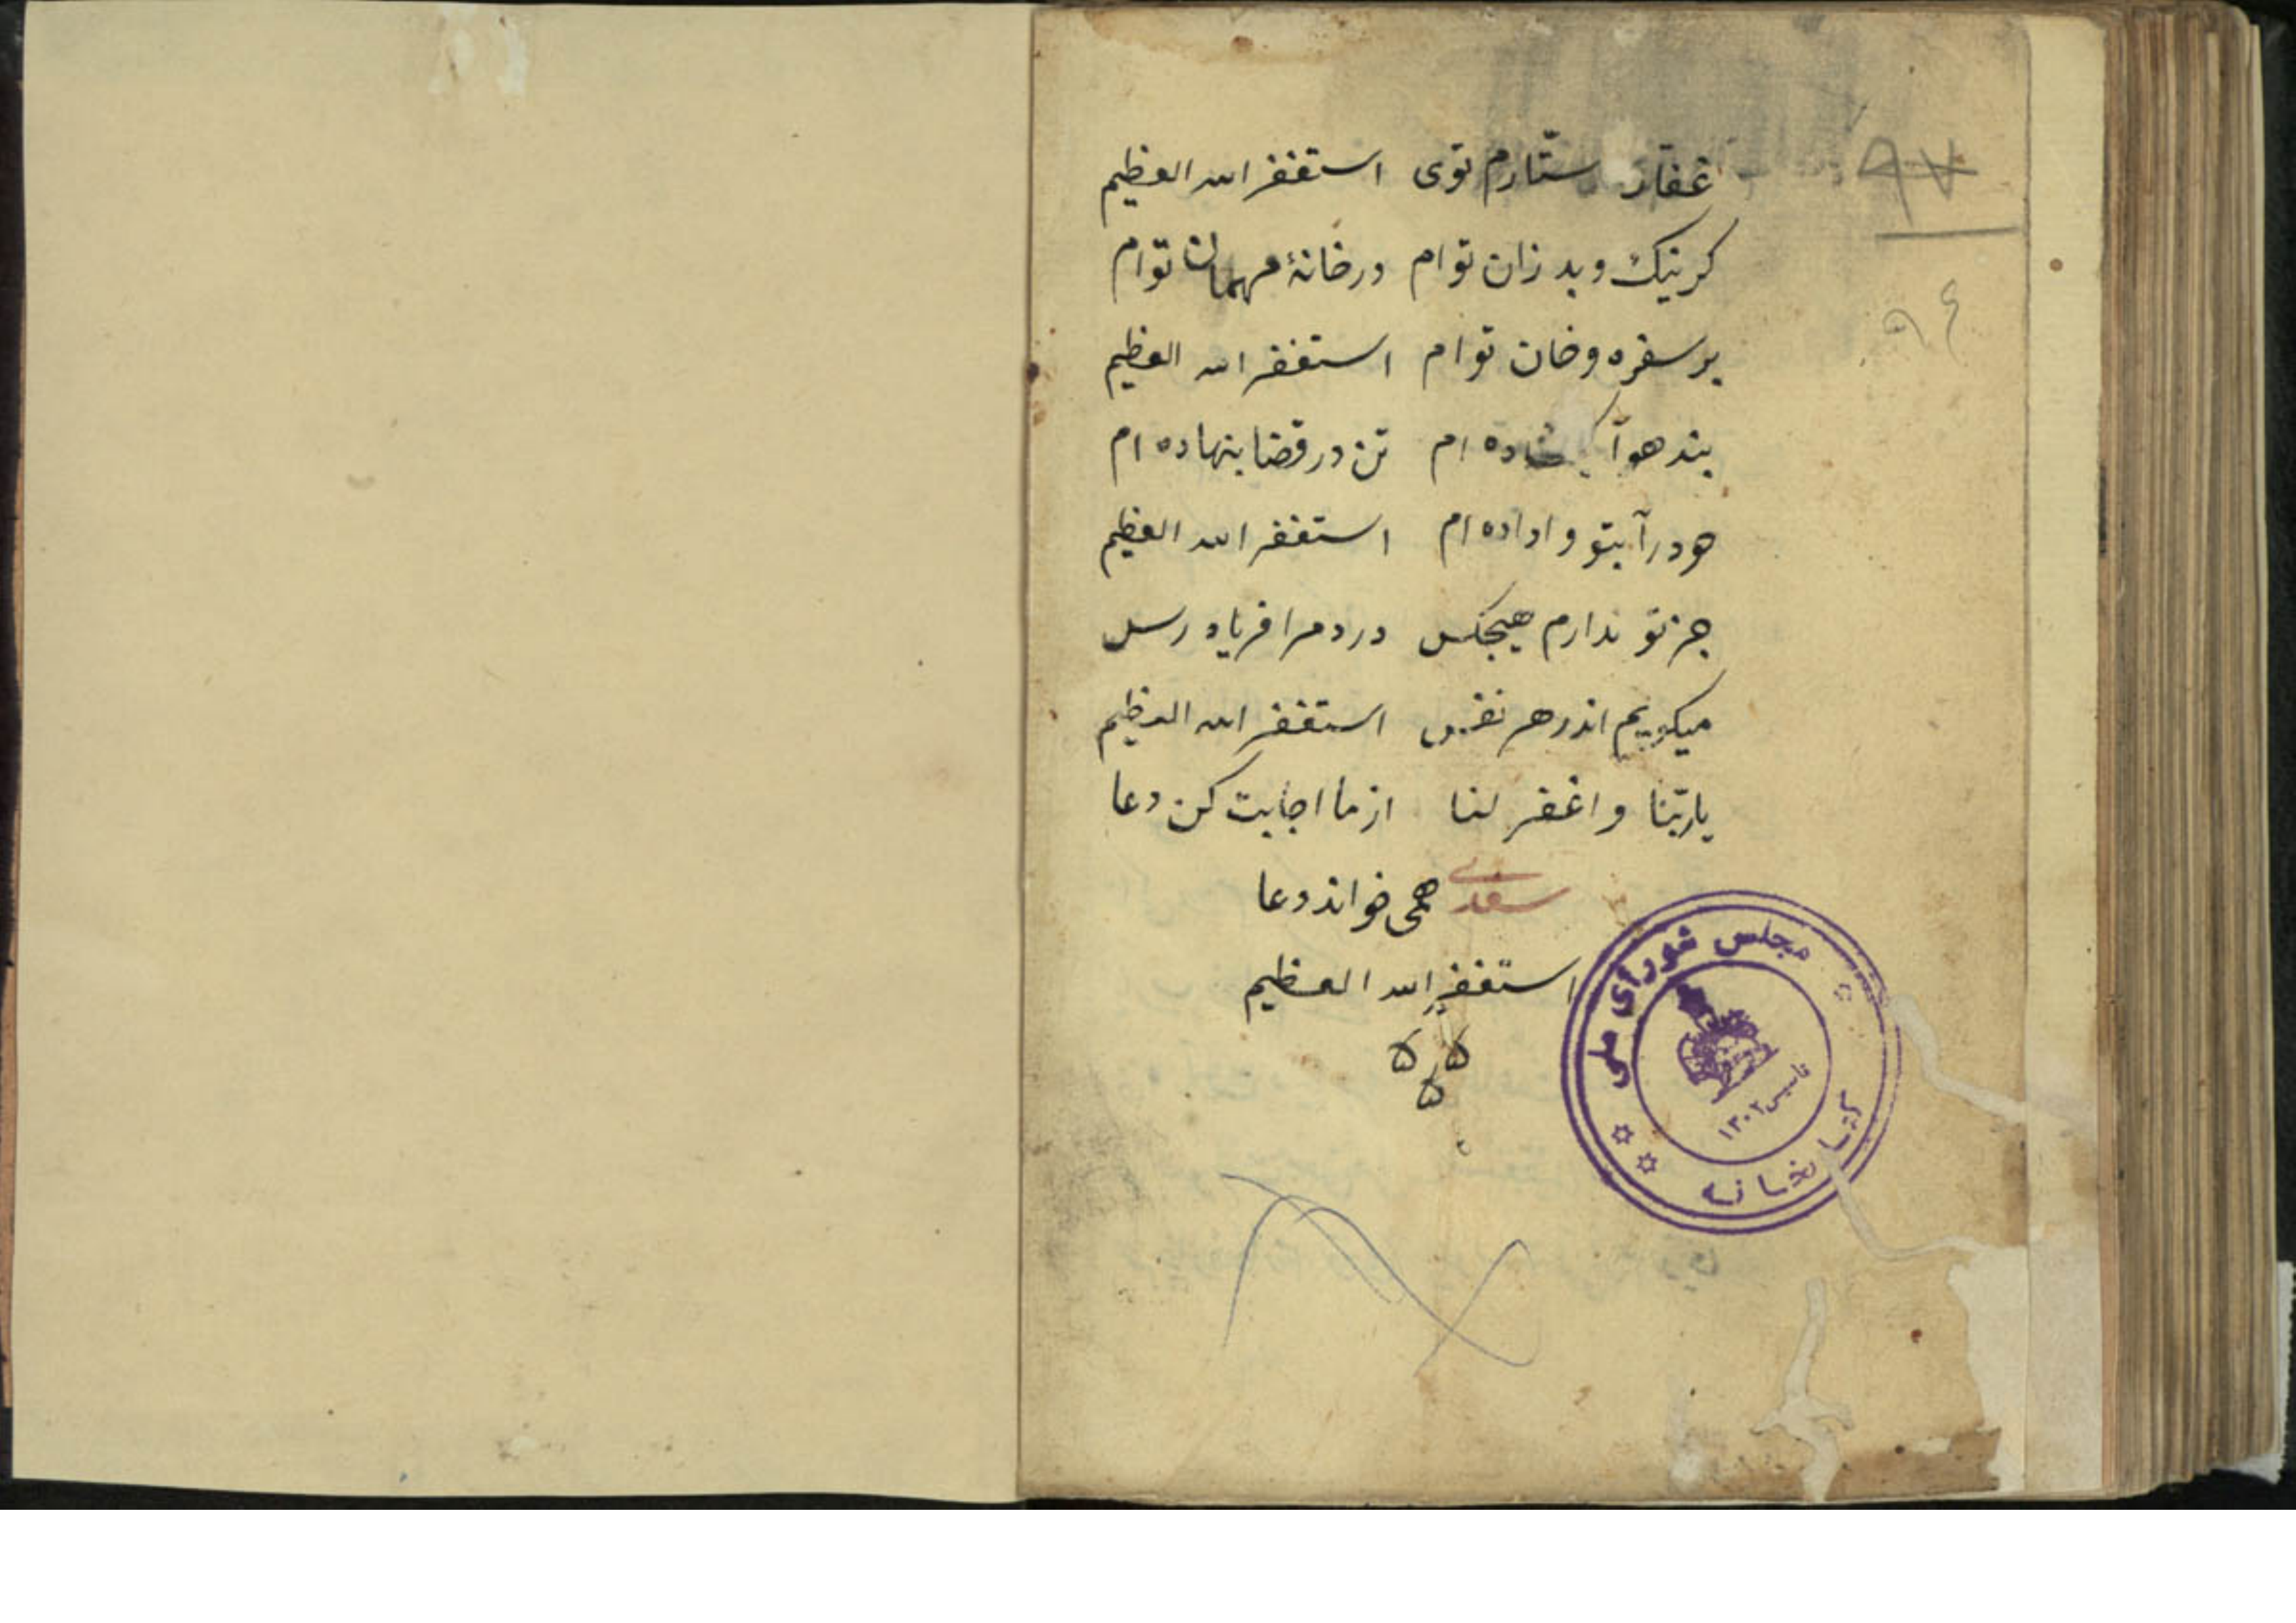 غفّار ستّارم توی استغفر الله العظیم
۹۷
کر نیک و بد زان توام در خانهٔ مهمان توام
۹٤
بر سفره و خان توام استغفر الله العظیم
بند هوا بکشاده ام تن در قضا بنهاده ام
خود را بتو واداده ام استغفر الله العظیم
جز تو ندارم هیچکس درد مرا فریاد رس
میکویم اندر هر نفس استغفر الله العظیم
یا ربّنا واغفر لنا از ما اجابت کن دعا
سعدی همی خواند دعا
استغفر الله العظیم
کتابخانه مجلس شورای ملی
تاسیس ۱۳۰۲